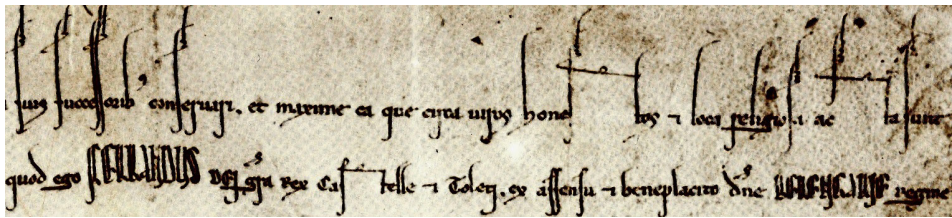 suis successorib' conseruari. et maxime ea que circa uiros honestos et loca religiosa ac ta sunt
quod ego FERNANDUS DEI gra Rex Castelle et Toleti. ex assensu et beneplacito dne BERENGARIE regine